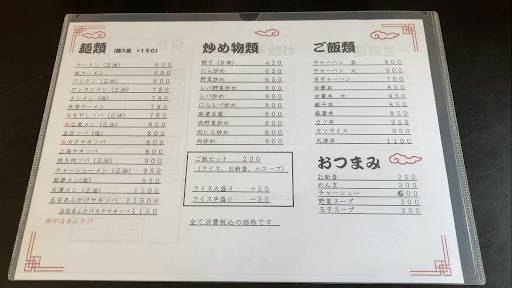 麺類 (麺大盛 +150)
ラーメン (正油) 600
塩ラーメン 600
ワンタン (正油) 600
ワンタンメン (正油) 780
タンメン (塩) 780
味噌ラーメン 780
※もやしソバ (正油) 800
※広東メン (正油) 800
五目ソバ (塩) 800
※カタヤキソバ 800
上海ヤキソバ 800
焼き肉ソバ (正油) 900
チャーシューメン (正油) 950
麻婆メン (塩) 950
天津メン (正油) 1100
五目あんかけヤキソバ 1150※
五目あんかけカタヤキソバ 1150
※印はあんかけ
炒め物類
餃子 (6個) 420
にら炒め 650
野菜炒め 650
レバ野菜炒め 800
レバ炒め 800
にらレバ炒め 800
麻婆豆腐 800
肉野菜炒め 800
肉にら炒め 800
肉炒め 900
ご飯セット 200
(ライス、お新香、小スープ)
ライス大盛り +50
ライス半盛り −30
全て消費税込の価格です
ご飯類
チャーハン 並 850
チャーハン 大 950
半チャーハン 700
中華丼 850
中華丼 大 950
麻婆丼 850
カツ丼 950
カツライス 950
天津丼 1100
おつまみ
お新香 250
めんま 300
チャーシュー 600
野菜スープ 300
玉子スープ 300